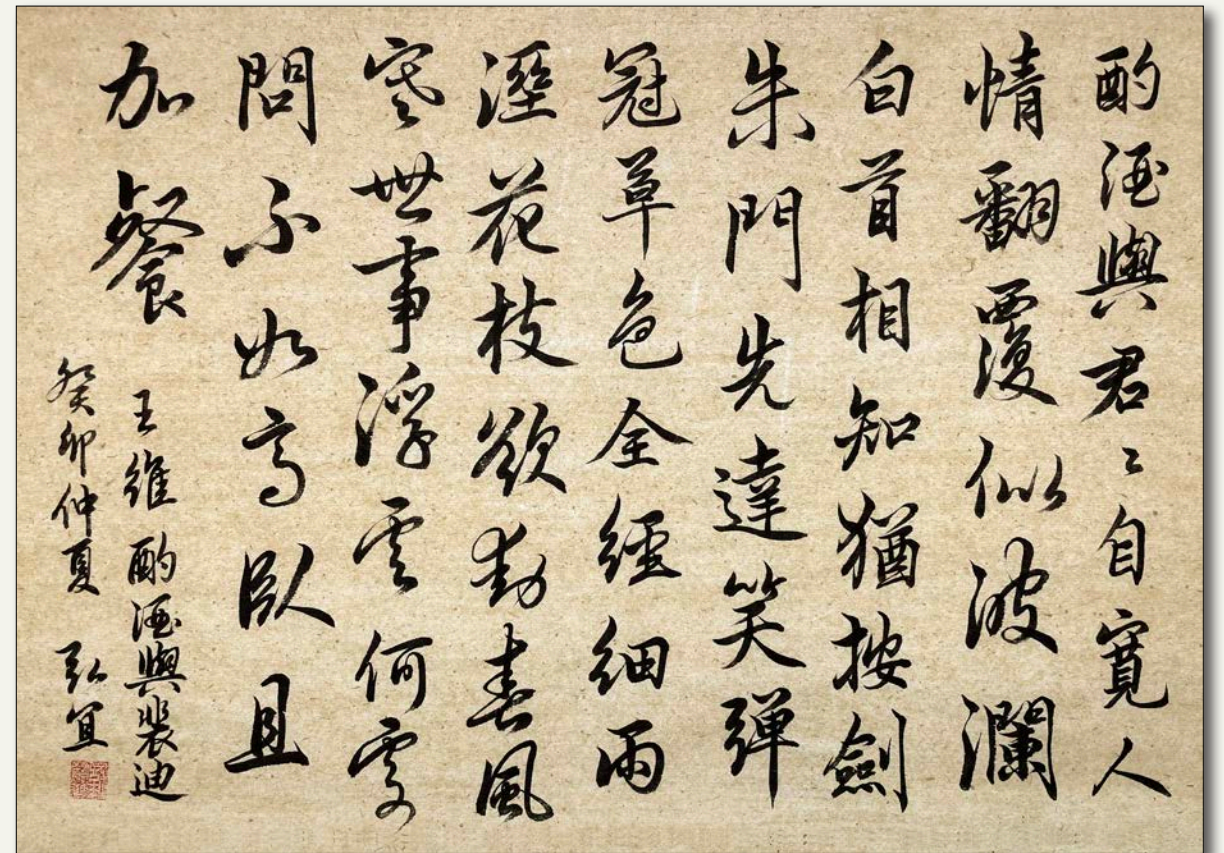 酌酒與君〻自寬人
情翻覆似波瀾
白首相知猶按劍
朱門先達笑彈
冠草色全經細雨
溼花枝欲動春風
寒世事浮雲何須
問不如高臥且
加餐
王維酌酒與裴迪
癸卯仲夏 弘宜